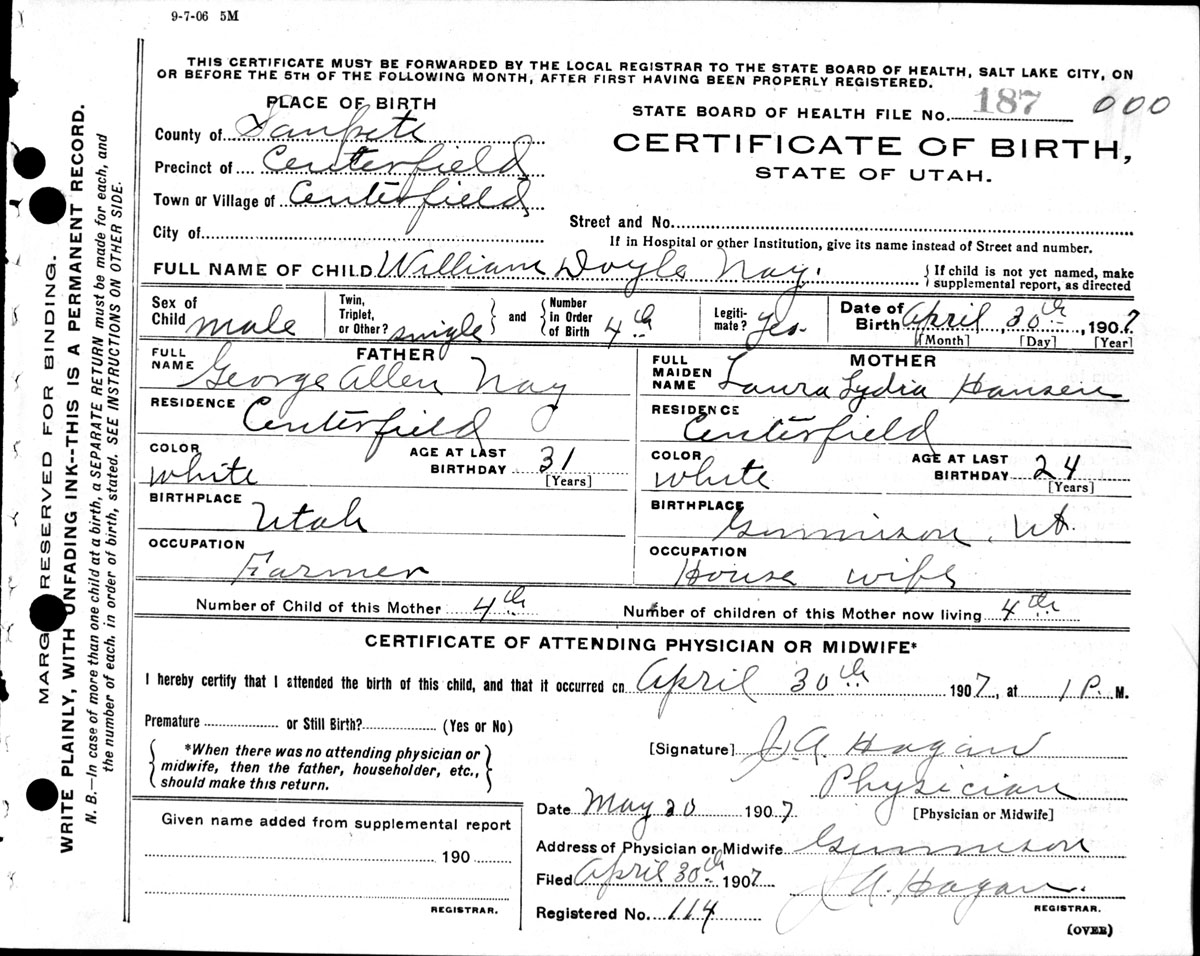 9-7-06 5M
THIS CERTIFICATE MUST BE FORWARDED BY THE LOCAL REGISTRAR TO THE STATE BOARD OF HEALTH, SALT LAKE CITY, ON
OR BEFORE THE 5TH OF THE FOLLOWING MONTH, AFTER FIRST HAVING BEEN PROPERLY REGISTERED.
PLACE OF BIRTH
County of Sanpete
Precinct of Centerfield
Town or Village of Centerfield
City of
STATE BOARD OF HEALTH FILE No. 187 000
CERTIFICATE OF BIRTH,
STATE OF UTAH.
Street and No.
If in Hospital or other Institution, give its name instead of Street and number.
FULL NAME OF CHILD William Doyle Nay. { If child is not yet named, make supplemental report, as directed
Sex of Child male Twin, Triplet, or Other? single } and { Number in Order of Birth 4th Legiti-mate? Yes Date of Birth April 30th, 1907
[Month] [Day] [Year]
FATHER
FULL NAME George Allen Nay
RESIDENCE Centerfield
COLOR White AGE AT LAST BIRTHDAY 31 [Years]
BIRTHPLACE Utah
OCCUPATION Farmer
MOTHER
FULL MAIDEN NAME Laura Lydia Hansen
RESIDENCE Centerfield
COLOR White AGE AT LAST BIRTHDAY 24 [Years]
BIRTHPLACE Gunnison, Ut.
OCCUPATION House wife
Number of Child of this Mother 4th Number of children of this Mother now living 4th
CERTIFICATE OF ATTENDING PHYSICIAN OR MIDWIFE*
I hereby certify that I attended the birth of this child, and that it occurred on April 30th 1907, at 1 P. M.
Premature or Still Birth? (Yes or No)
*When there was no attending physician or
midwife, then the father, householder, etc.,
should make this return.
[Signature] J. A. Hagan
Physician
[Physician or Midwife]
Date May 20 1907
Address of Physician or Midwife Gunnison
Filed April 30th 1907 J A. Hagan.
REGISTRAR.
Registered No. 114
(OVER)
Given name added from supplemental report
190
REGISTRAR.
MARGIN RESERVED FOR BINDING.
WRITE PLAINLY, WITH UNFADING INK--THIS IS A PERMANENT RECORD.
N. B.—In case of more than one child at a birth, a SEPARATE RETURN must be made for each, and
the number of each, in order of birth, stated. SEE INSTRUCTIONS ON OTHER SIDE.